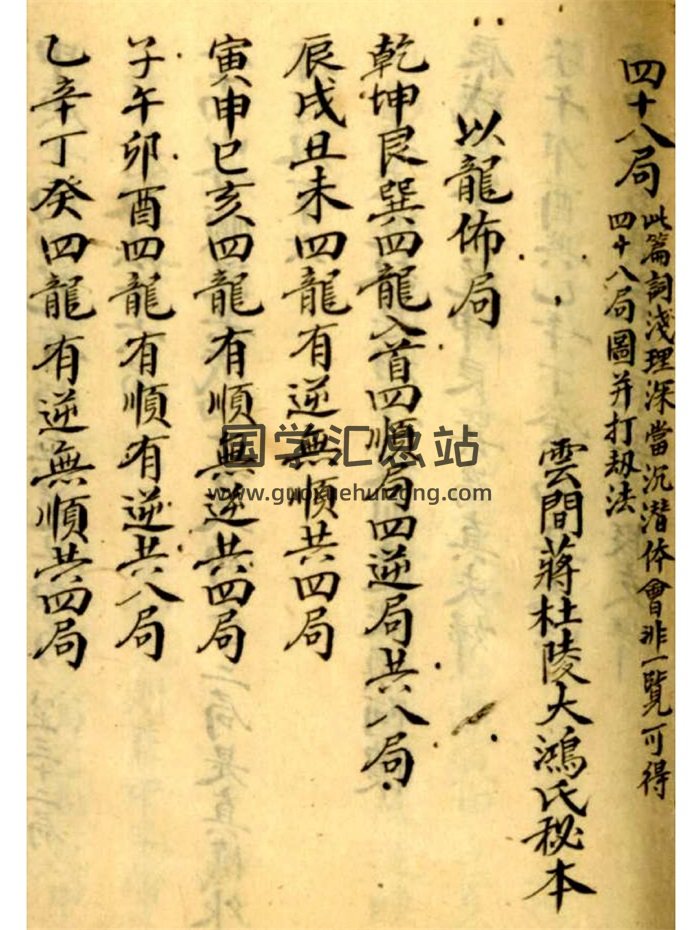 四十八局
此篇詞淺理深當沉潛体會非一覽可得
四十八局圖并打刼法
雲間蔣杜陵大鴻氏秘本
以龍佈局
乾坤艮巽四龍入首四順局四逆局共八局
辰戌丑未四龍有逆無順共四局
寅申巳亥四龍有順無逆共四局
子午卯酉四龍有順有逆共八局
乙辛丁癸四龍有逆無順共四局
国学汇总站
www.guoxuehuizong.com